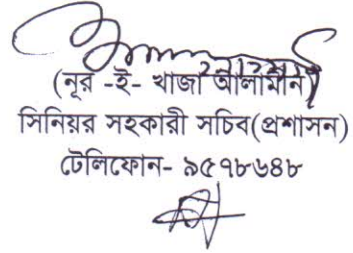 (নূর -ই- খাজা আলামীন)
সিনিয়র সহকারী সচিব(প্রশাসন)
টেলিফোন- ৯৫৭৮৬৪৮